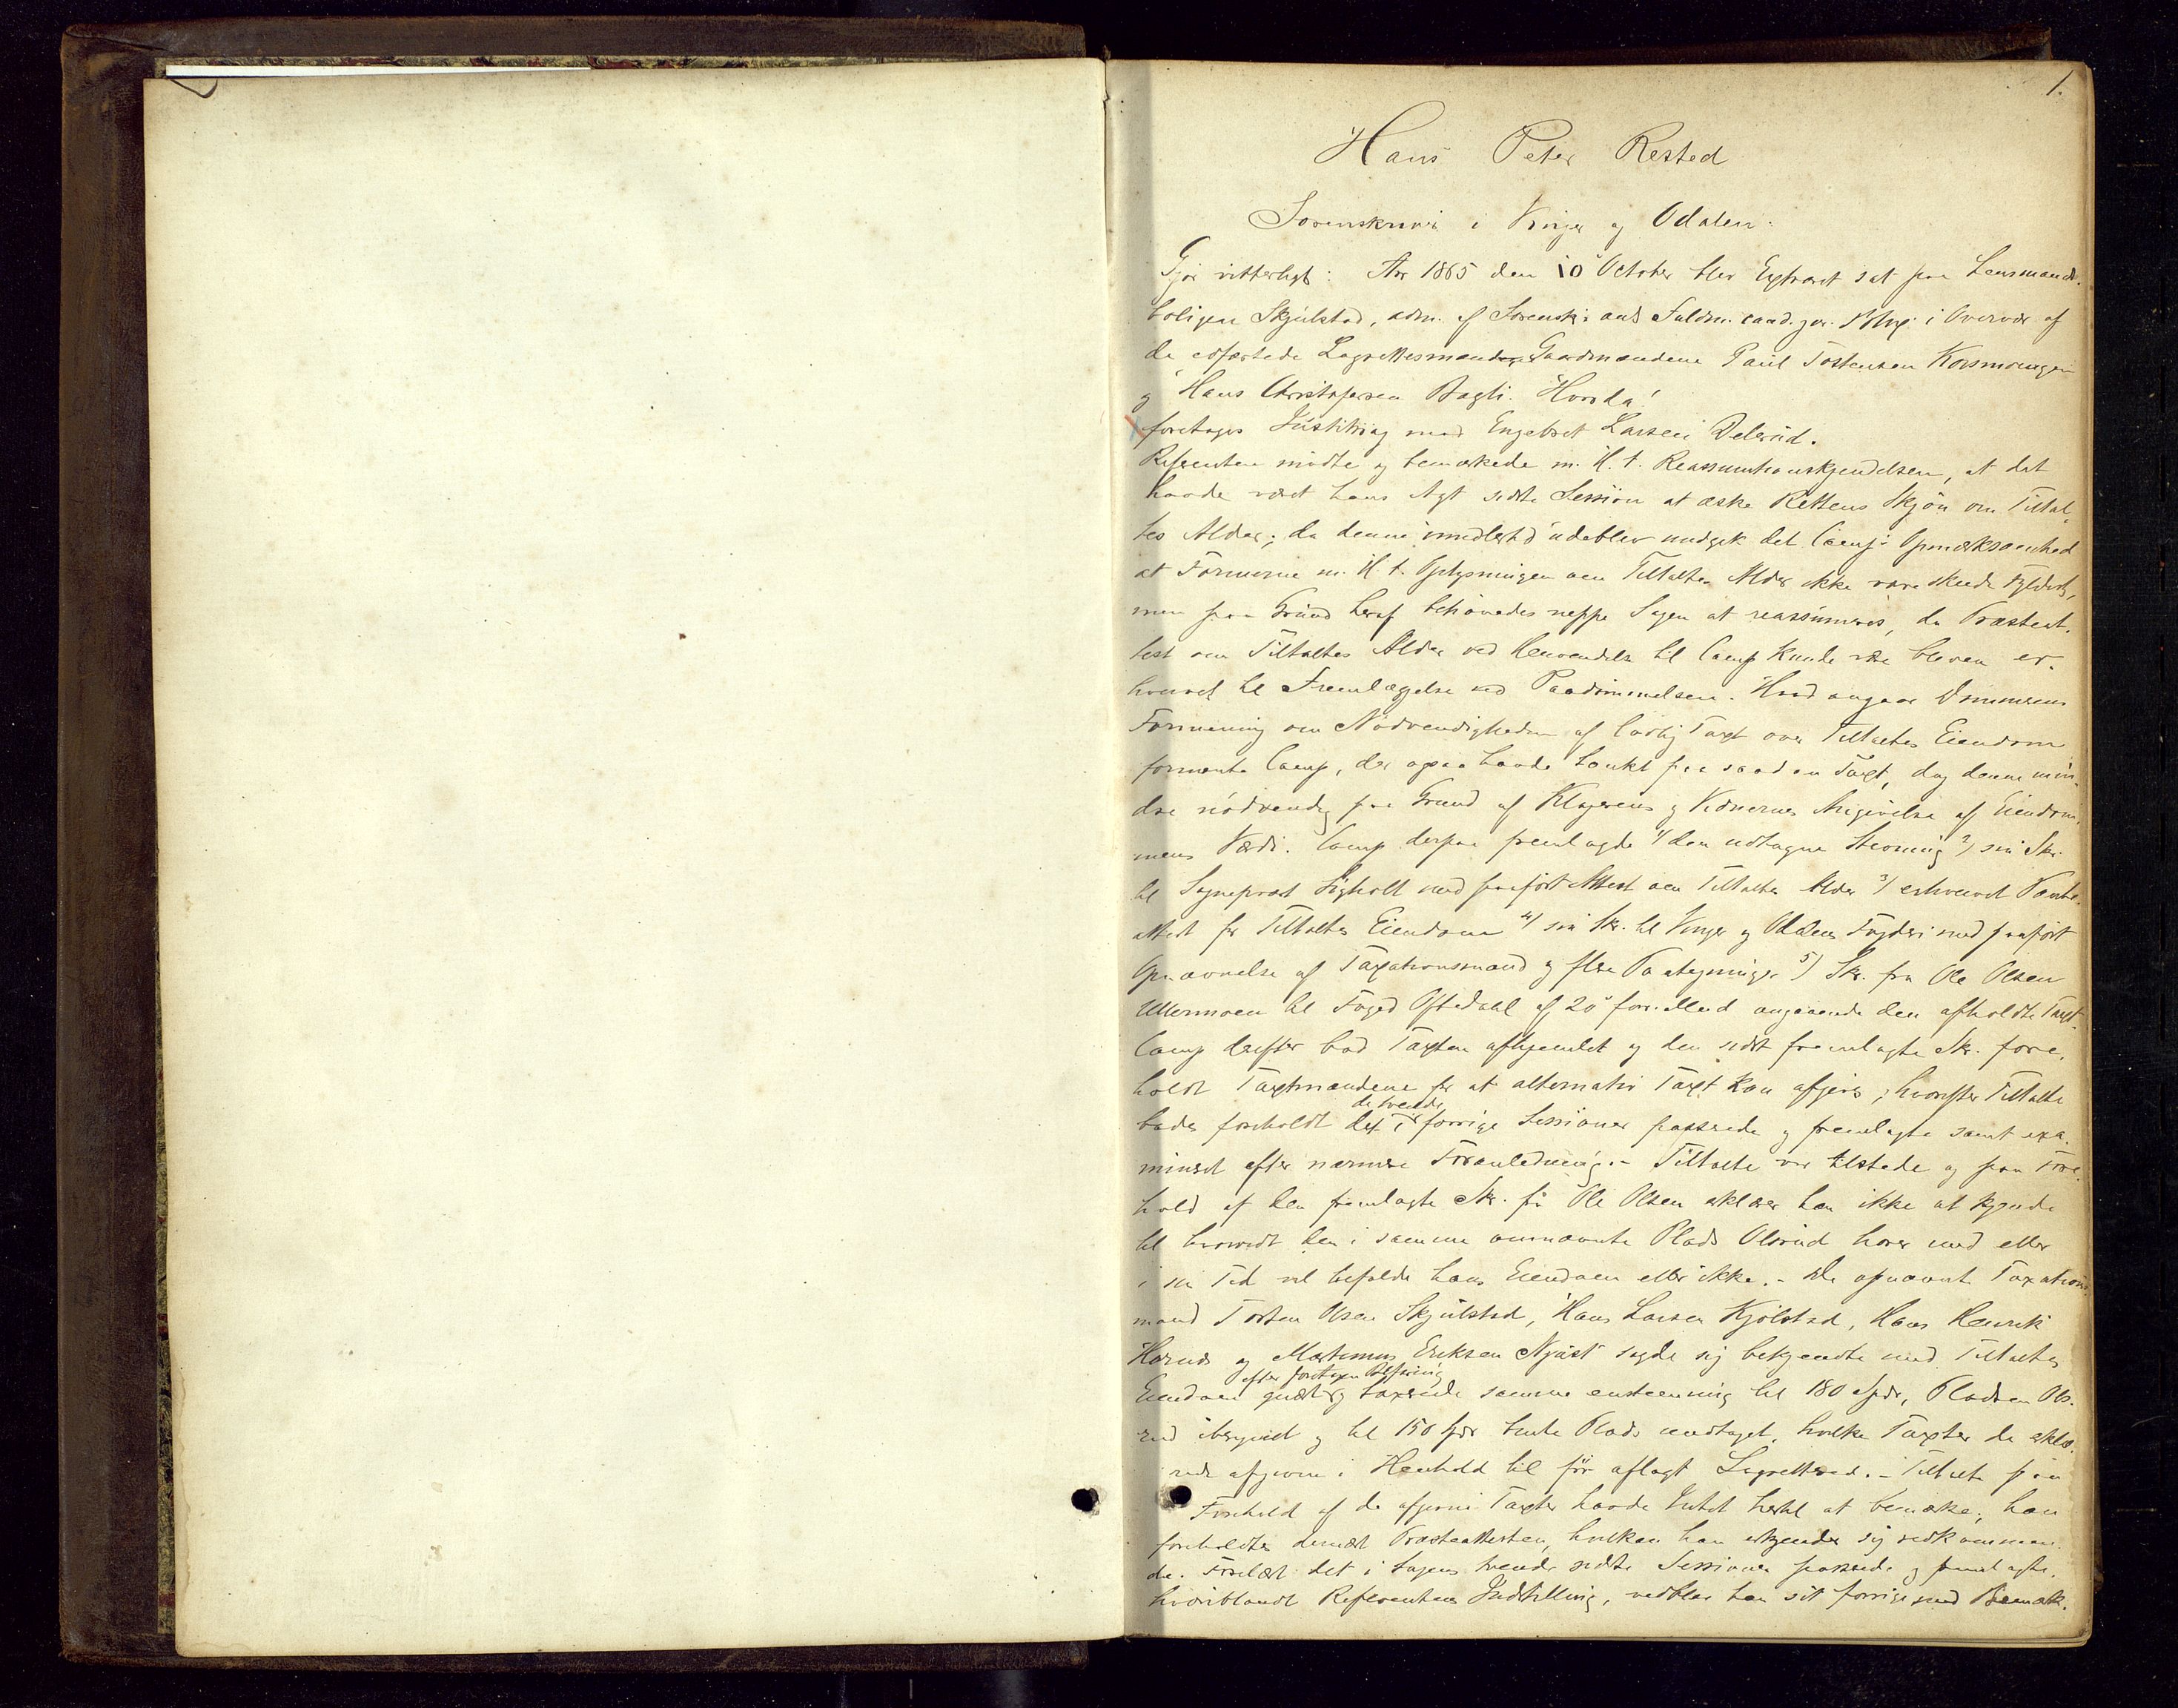 1.
Hans Peter Rested
Sorenskriver i Vinger og Odalen.
Gjør vitterligt: Aar 1865 den 10 October blev Extraret sat paa Lensmands-
boligen Skjulstad, adm. af Sorenskr's aut Fuldm. cand. jur. i Overvær af
de edfæstede Lagrettesmænd Gaardmændene Paul Tostensen Korsmoengen
og Hans Christophersen Bagli. Hvorda!
foretoges Justitssag mod Engebret Larsen Delerud.
Referenten mødte og bemærkede m. H. t. Reassumtionskjendelsen, at det
havde været hans Agt sidste Session at æske Rettens Skjøn om Tiltal-
tes Alder; da denne imidlertid udeblev undgik det Comp's Opmærksomhed
at Formerne m. H. t. Oplysningen om Tiltaltes Alder ikke vare skeede Fyldest,
men paa Grund heraf behøvedes neppe Sagen at reassumeres, da Præsteat-
test om Tiltaltes Alder ved Henvendelse til Comp kunde være bleven er-
hvervet til Fremlæggelse ved Paadømmelsen. Hvad angaar Dommerens
Formening om Nødvendigheden af lovlig Taxt over Tiltaltes Eiendom
formente Comp, der ogsaa havde tænkt paa saadan Taxt, dog denne min-
dre nødvendig paa Grund af Klagerens og Vidnernes Angivelse af Eiendom-
mens Værdi. Comp derpaa fremlagde 1/ den udtagne Stevning 2/ sin Skr.
til Sogneprest Sigholt med paaført Attest om Tiltaltes Alder 3/ erhvervet Pante-
attest for Tiltaltes Eiendom 4/ sin Skr. til Vinger og Odalens Fogderi med paaført
Opnævnelse af Taxationsmænd og flere Paategninger 5/ Skr. fra Ole Olsen
Ullermoen til Foged Oftedahl af 20de forr. Md angaaende den afholdte Taxt.
Comp derefter bad Taxten afhjemlet og den sidst fremlagte Skr. fore-
holdt Taxtmændene for at alternativ Taxt kan afgives, hvorefter Tiltalte
bades foreholdt det i de tvende forrige Sessioner passerede og fremlagte samt exa-
mineret efter nærmere Foranledning. – Tiltalte var tilstede og paa Fore-
hold af den fremlagte Skr. fra Ole Olsen erklærer han ikke at kjende
til hvorvidt den i samme omnævnte Plads Olsrud hører med eller
i sin Tid vil befalde hans Eiendom eller ikke. – De opnævnte Taxations-
mænd Torsten Olsen Skjulstad, Hans Larsen Kjølstad, Hans Henrik
Hornes og Martinus Eriksen Nyaset sagde sig bekjendte med Tiltaltes
Eiendom efter foretagen Besigtelse og taxerede samme eenstemmig til 180 Spdr, Pladsen Ols-
rud iberegnet og til 150 Spdr bente Plads undtaget, hvilke Taxter de erklæ-
rede afgivne i Henhold til før aflagt Lagrettesed. – Tiltalte paa
Forehold af de afgivne Taxter havde Intet hertil at bemærke; han
foreholdtes dernæst Præsteattesten, hvilken han erkjendte sig vedkommen-
de. Forelæst det i Sagens tvende sidste Sessioner passerede og fremlagte,
hvoriblandt Referentens Indstilling, vedblev han sit forrige med Bemærk-